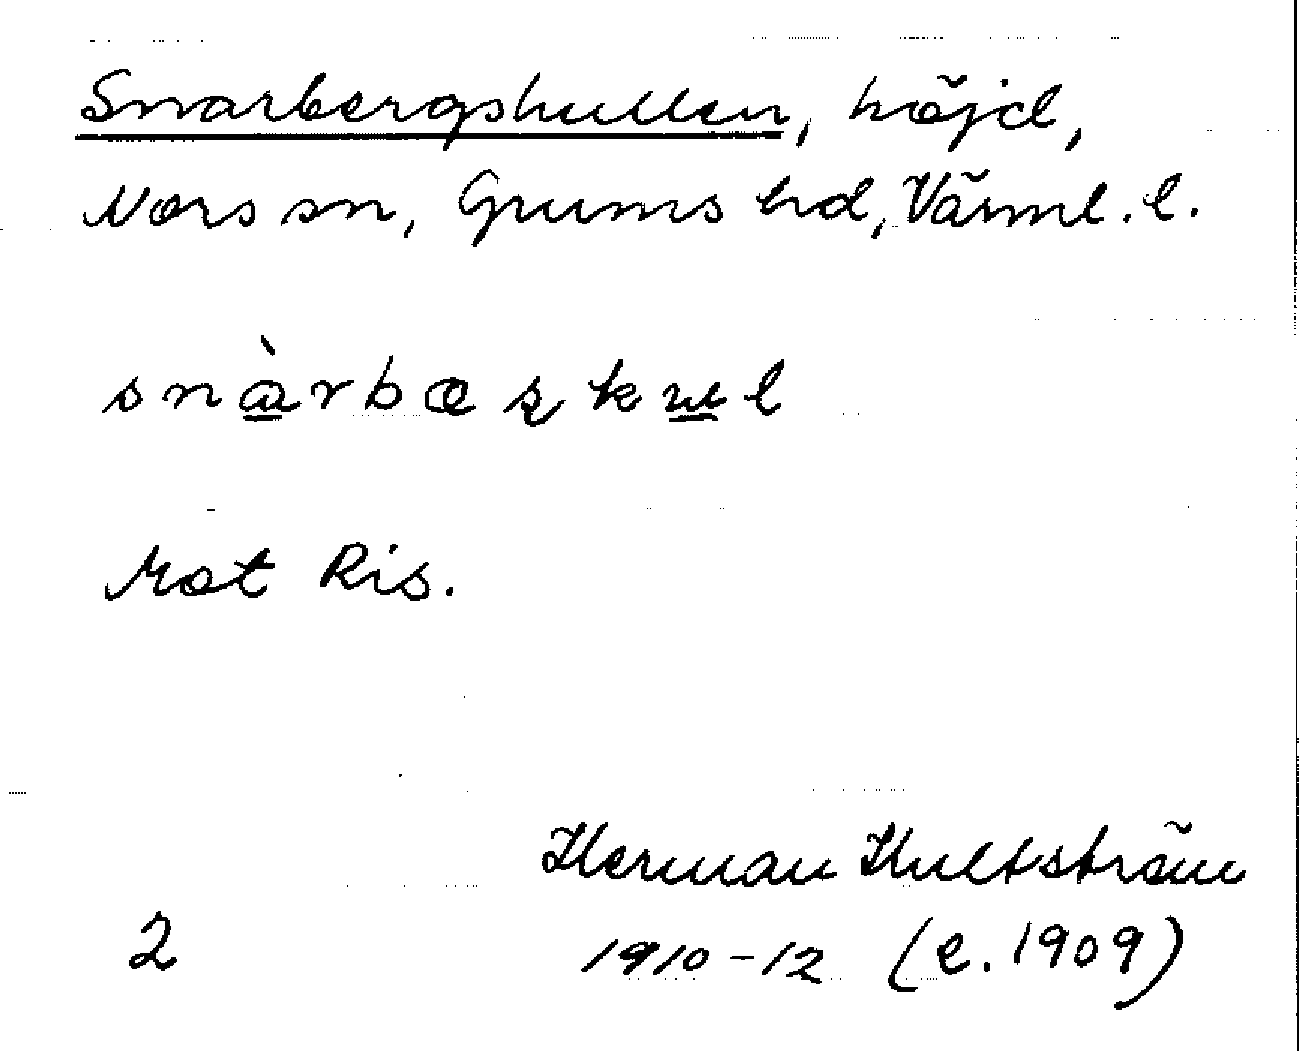 Snarbergskullen, höjd,
Nors sn, Grums hd, Värml. l.
snàrbæʂkul
Mot Ris.
Herman Hultström
2 1910-12 (e. 1909)